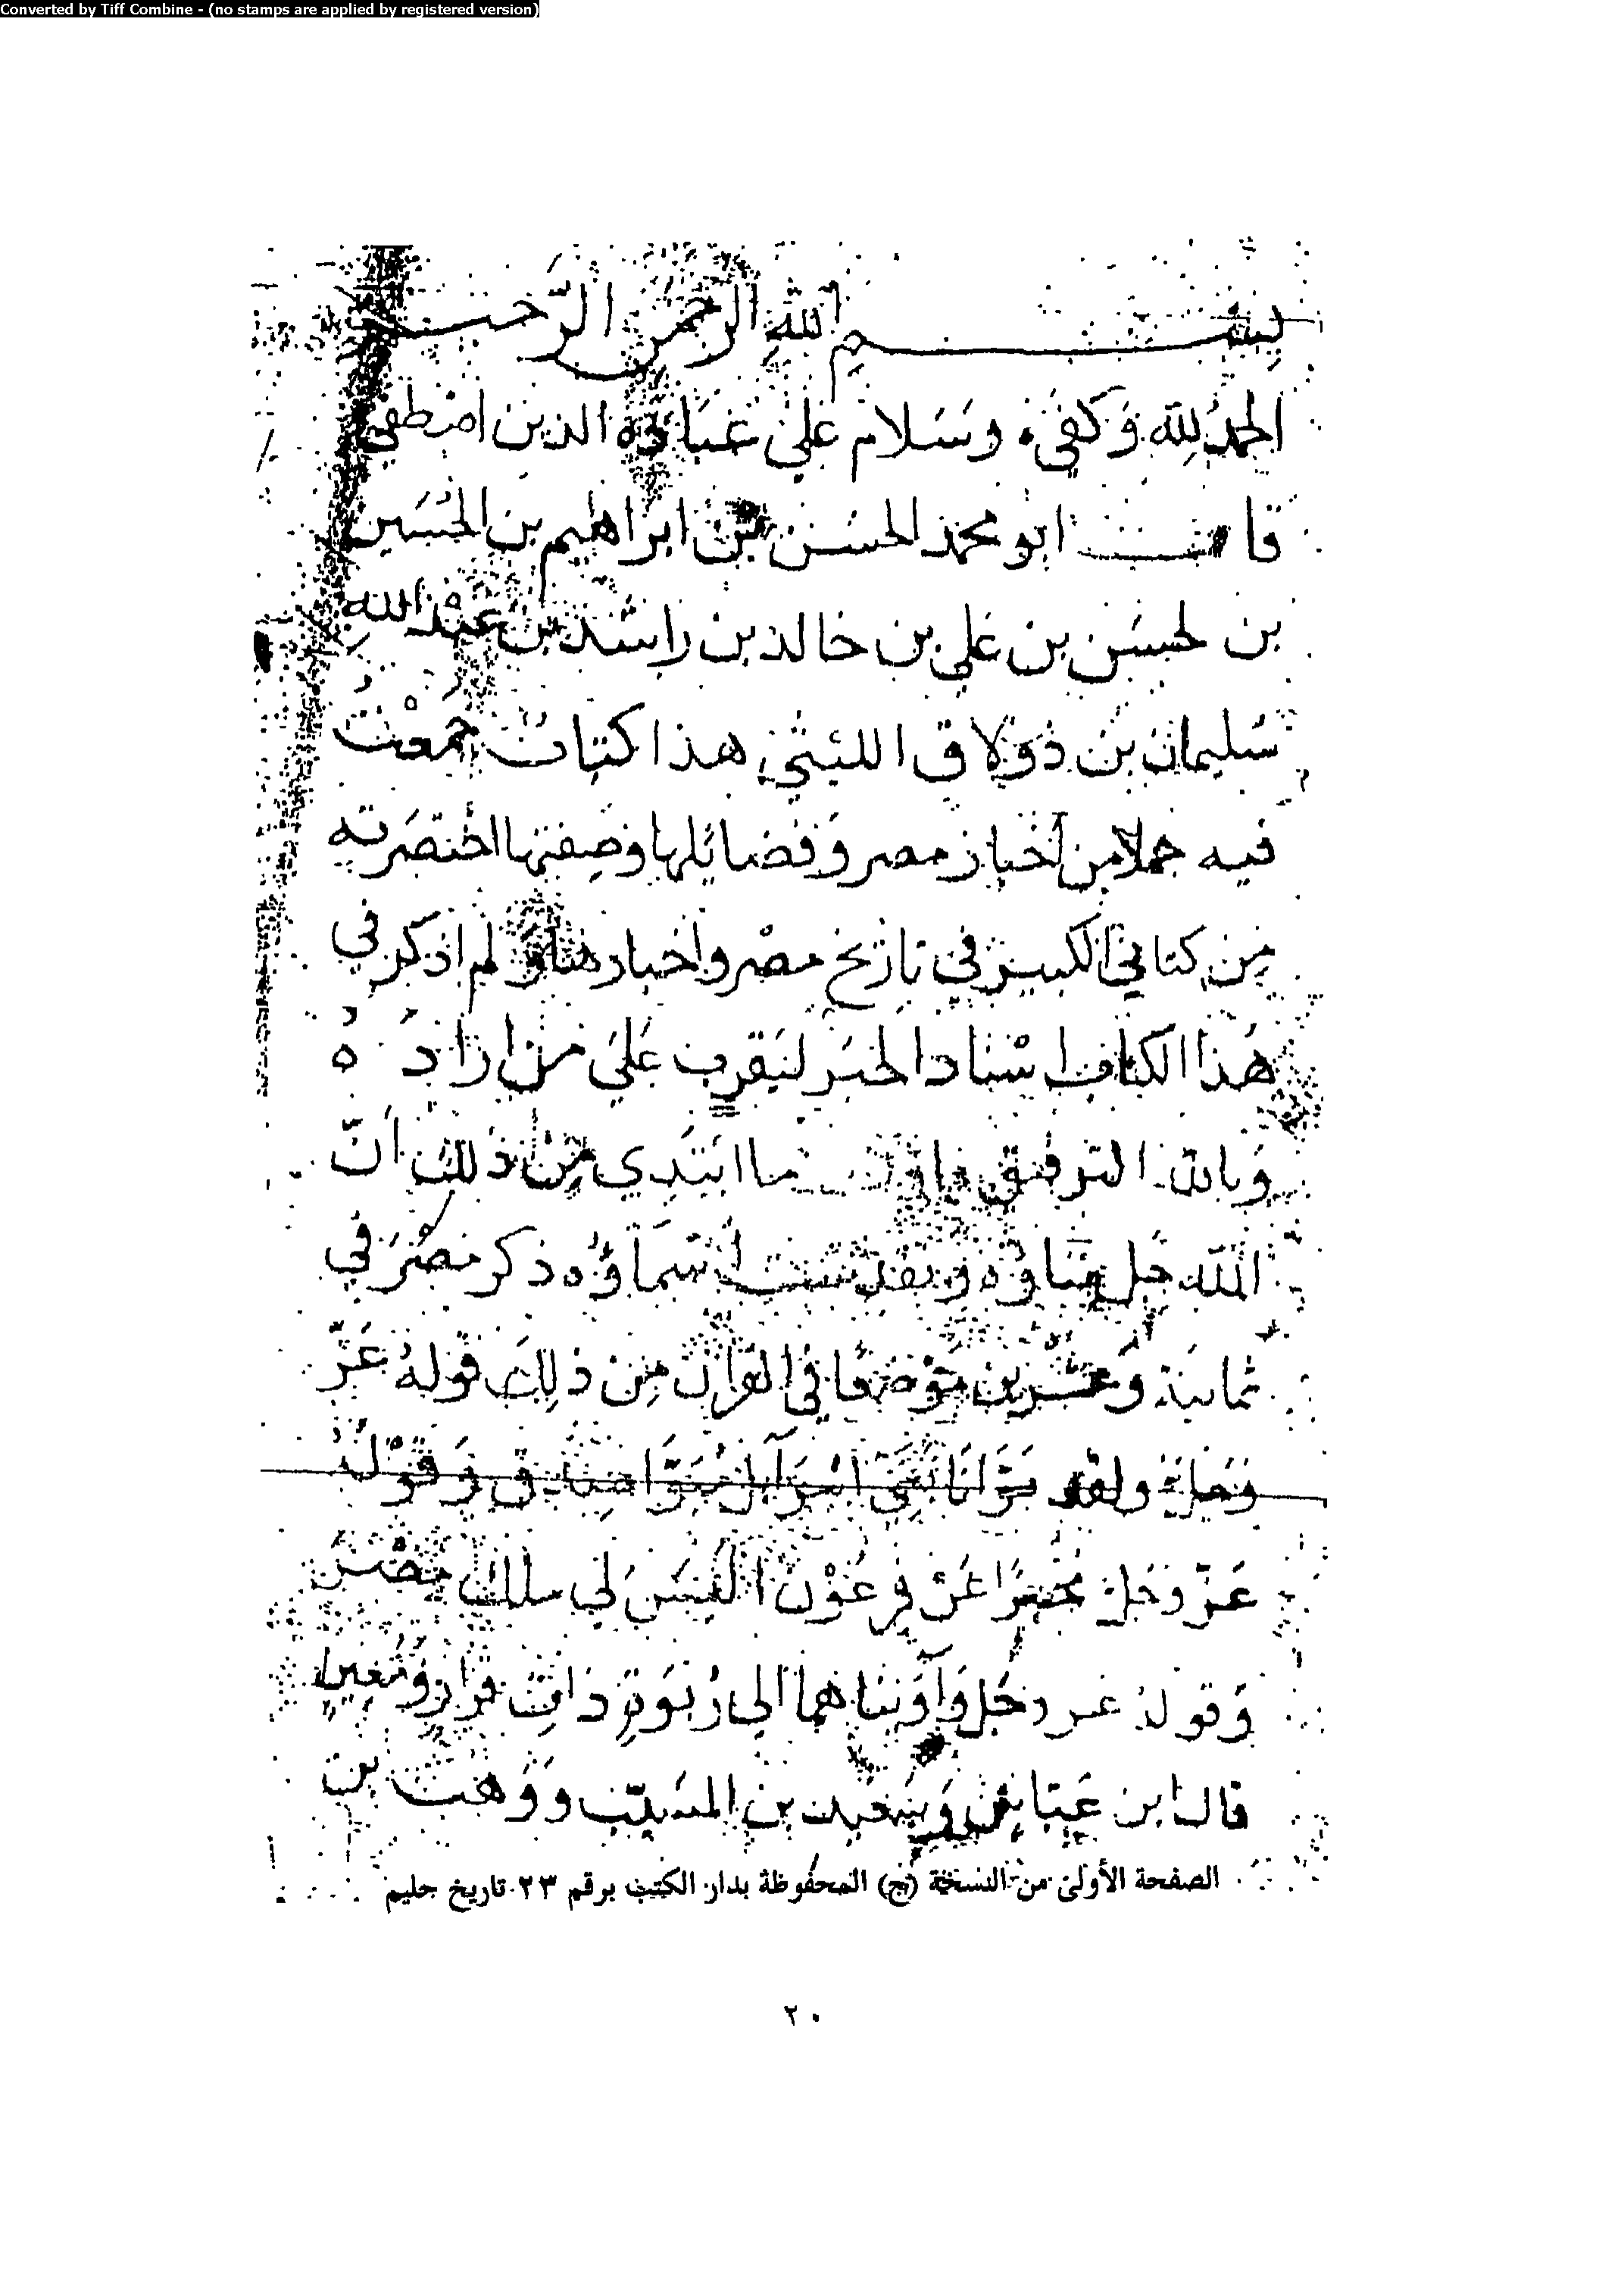 Converted by Tiff Combine - (no stamps are applied by registered version)
بِسْمِ اللهِ الرحمن الرَّحيم
الحمدُ لِلّه وَكفىٰ وَسَلام عَلىٰ عبَاده الذين اصطفى
قال ابو محمد الحسَن بن ابراهيم بن الحُسَين
بن الحسَن بن علي بن خالد بن راشد بن عبْد اللهِ
سُليمان بن زولاق الليثي هذا كتابٌ جمَعْتُ
فيه جملا من أخبار مصر وَفضائلها وصِفتها اختصَرته
مِن كتابي الكبير في تاريخ مصْر واخبارها ولم اذكر في
هَذا الكتاب اسْناد الخبَر ليَقرب عَلىَ من ارادَهُ
وَبالله التوفيق فاول ما ابتَدي مِن ذلك أنّ
اللّه جَل ثناؤه وتقدسَت أسْمَاؤُه ذكر مصْرَ في
ثمانيَة وَعشرين مَوْضعًا في القرآن مِن ذلِكَ قولهُ عَزّ
وَجلّ ولقد بَوَّأنَا بَنِي اسْرَآئِيل مُبَوَّأ صِدْق وَقَوْلُهُ
عَزّ وَجَلّ مخبرًا عَن فِرعَوْن أَلَيْسَ لي ملك مصْرَ
وَقولهُ عز وجَل وَآوَيناهما الى رَبوَةٍ ذاتِ قرارٍ وَمَعينٍ
قال ابن عَبّاسٍ وَسَعيد بن المسَيّب وَوَهْب بن
الصفحة الأولى من النسخة (ج) المحفوظة بدار الكتب برقم ٢٣ تاريخ حليم
٢٠